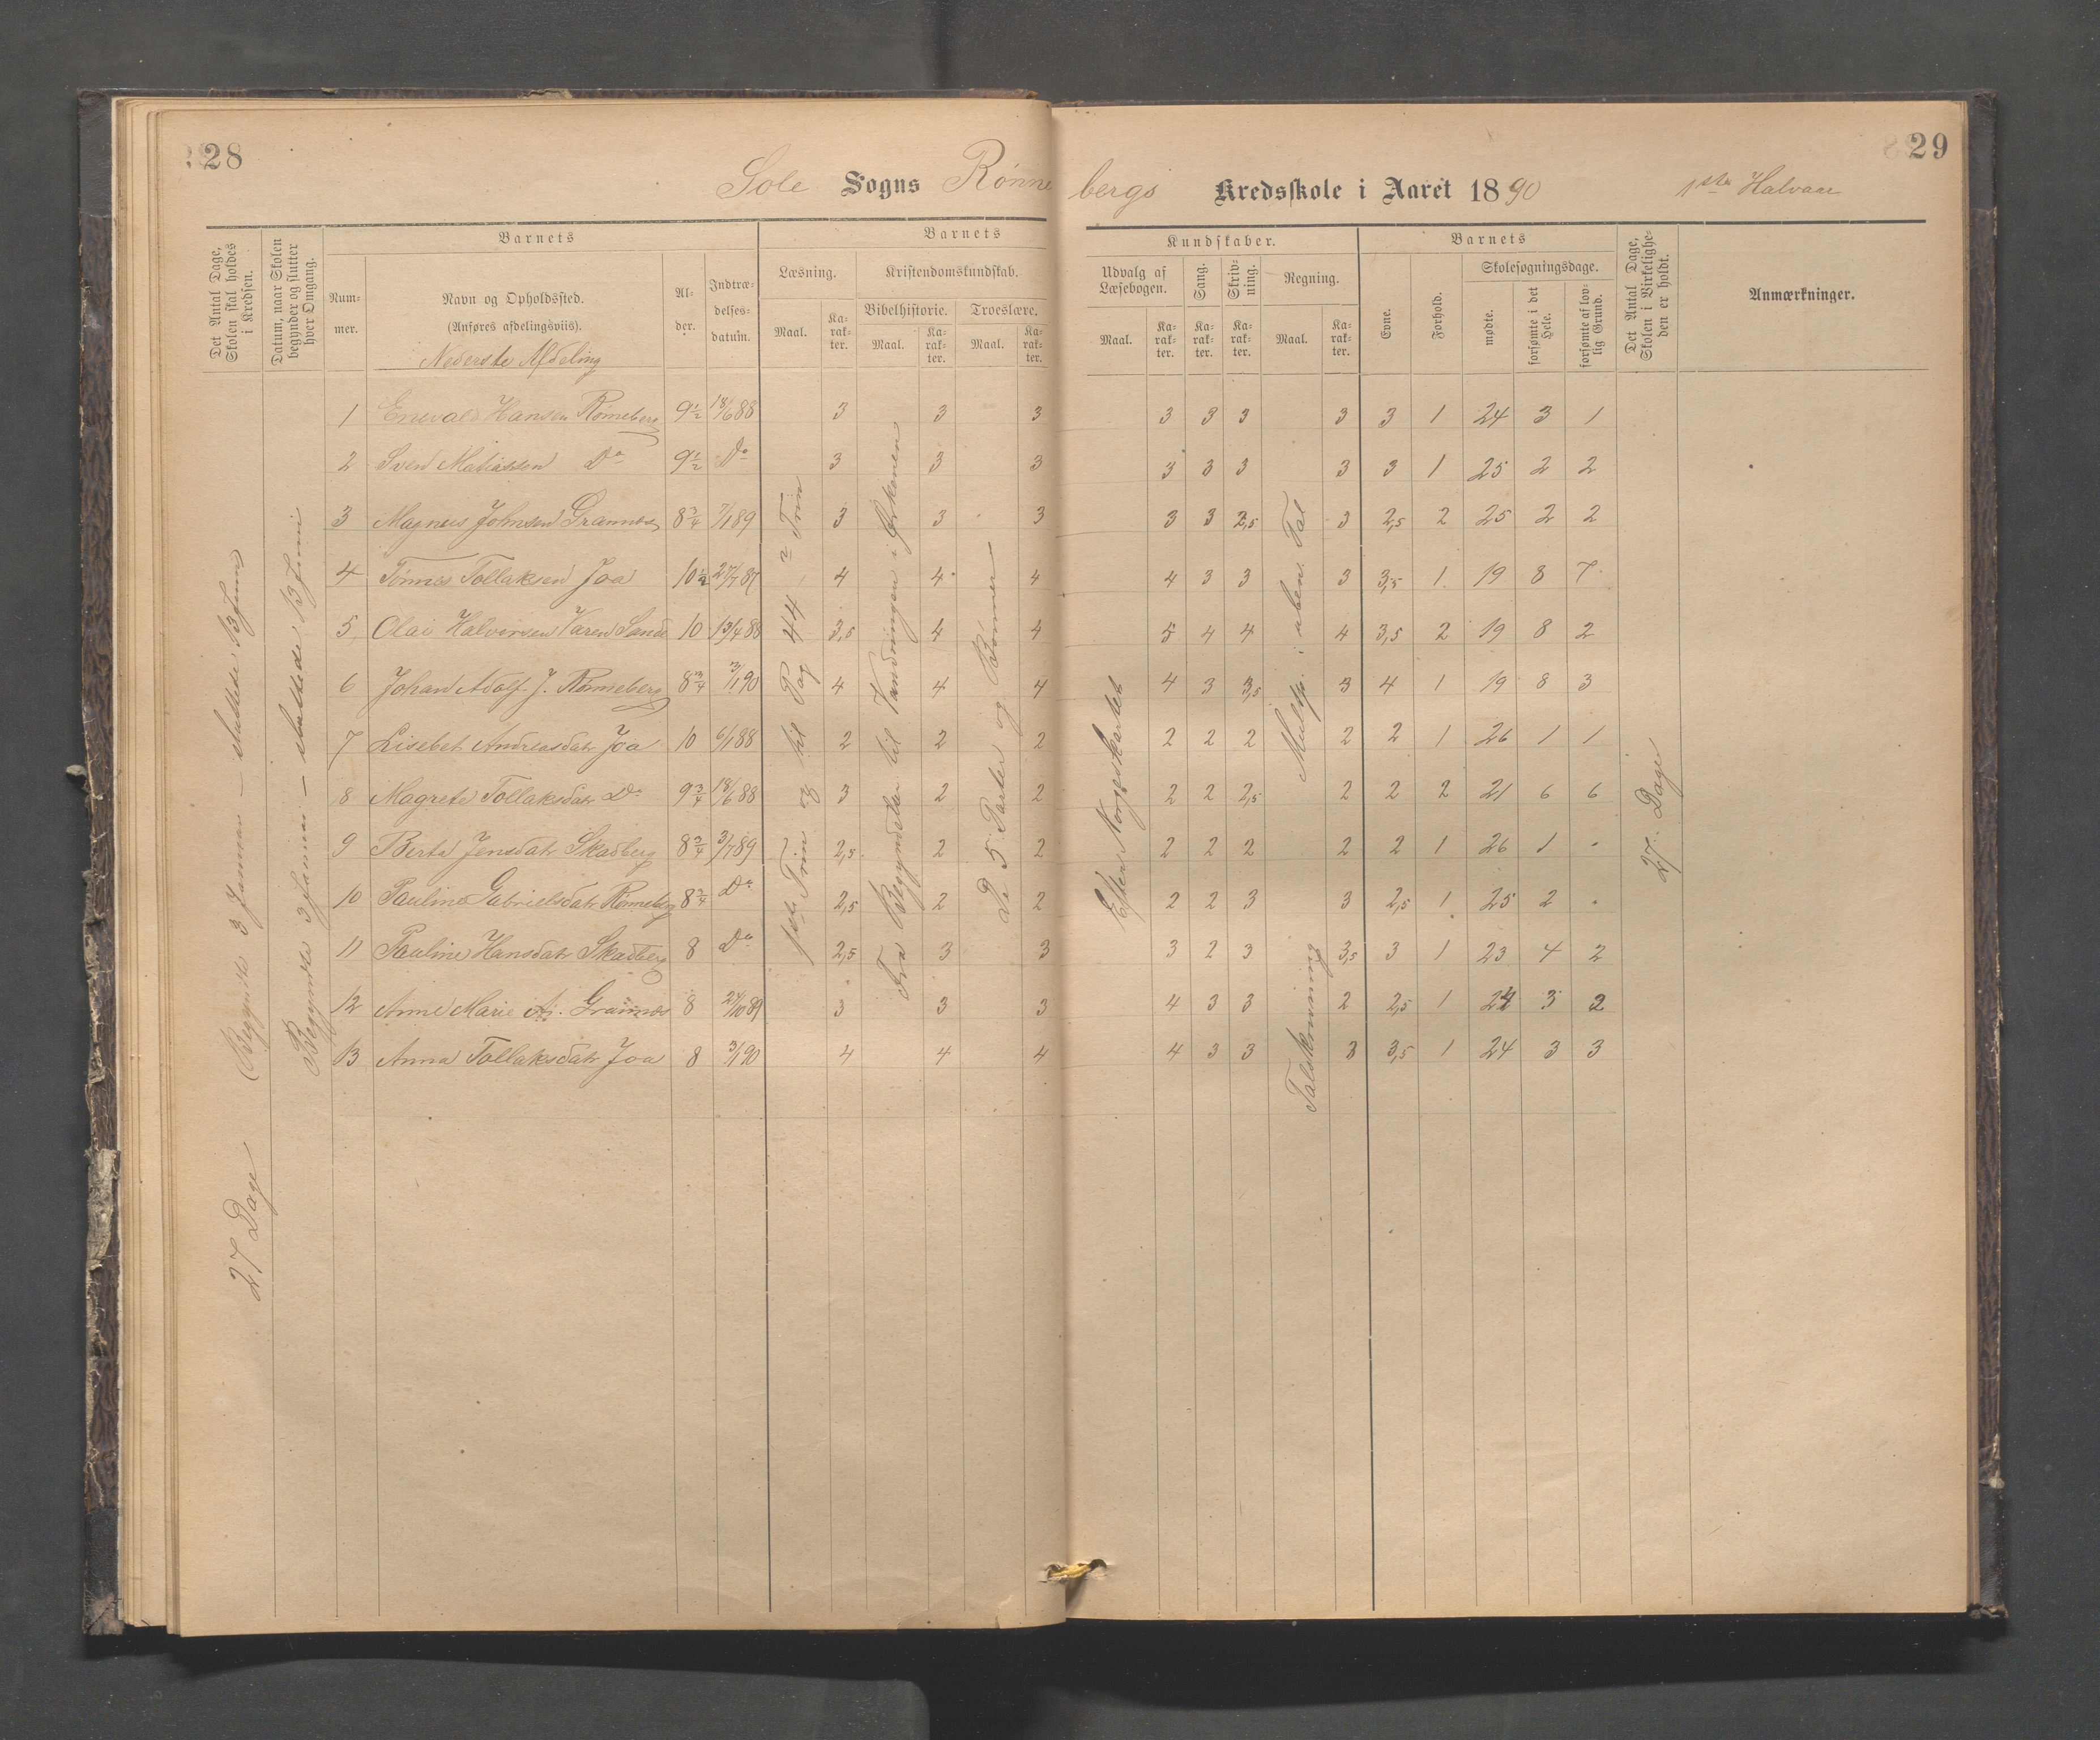 28
29
Sole Sogns Rønnebergs Kredsskole i Aaret 1890 1ste Halvaar
Det Antal Dage, Skolen skal holdes i Kredsen.
Datum, naar Skolen begynder og slutter hver Omgang.
Barnets
Num-mer.
Navn og Opholdssted.
(Anføres afdelingsviis).
Nederste Afdeling
Al-der.
Indtræ-delses-datum.
Barnets
Læsning.
Maal.
Ka-rak-ter.
Kristendomskundskab.
Bibelhistorie.
Maal.
Ka-rak-ter.
Troeslære.
Maal.
Ka-rak-ter.
Kundskaber.
Udvalg af Læsebogen.
Maal.
Ka-rak-ter.
Sang.
Ka-rak-ter.
Skriv-ning.
Ka-rak-ter.
Regning.
Maal.
Ka-rak-ter.
Barnets
Evne.
Forhold.
Skolesøgningsdage.
mødte.
forsømte i det Hele.
forsømte af lov-lig Grund.
Det Antal Dage, Skolen i Virkelighe-den er holdt.
Anmærkninger.
1 Enevald Hansen Rønneberg 9½ 18/6 88 3 3 3 3 3 3 3 3 1 24 3 1
2 Sven Matiassen Do 9½ Do 3 3 3 3 3 3 3 3 1 25 2 2
3 Magnus Johnsen Grannes 8¾ 7/1 89 3 3 3 3 3 2,5 3 2,5 2 25 2 2
4 Tønnes Tollaksen Joa 10½ 27/7 87 4 4 4 4 3 3 3 3,5 1 19 8 7
5 Olai Halvorsen Varen Sande 10 13/4 88 3,5 4 4 5 4 4 4 3,5 2 19 8 2
6 Johan Adolf J. Rønneberg 8¾ 3/1 90 4 4 4 4 3 3,5 3 4 1 19 8 3
7 Lisebet Andreasdatr Joa 10 6/1 88 2 2 2 2 2 2 2 2 1 26 1 1
8 Magrete Tollaksdatr Do 9¾ 18/6 88 3 2 2 2 2 2,5 2 2 2 21 6 6
9 Berta Jensdatr Skadberg 8¾ 3/7 89 2,5 2 2 2 2 2 2 2 1 26 1 "
10 Pauline Gabrielsdatr Rønneberg 8¾ Do 2,5 2 2 2 2 3 3 2,5 1 25 2 "
11 Pauline Hansdatr Skadberg 8 Do 2,5 3 3 3 2 3 3,5 3 1 23 4 2
12 Anne Marie A. Grannes 8 24/10 89 3 3 3 4 3 3 2 2,5 1 24 3 2
13 Anna Tollaksdatr Joa 8 3/1 90 4 4 4 4 3 3 3 3,5 1 24 3 3
27 Dage
Begyndte 3 Januar – sluttede 13 Juni
Begyndte 3 Januar – sluttede 13 Juni
1ste Trin og til Pag 44 i 2 Trin
Fra Begyndelse til Vandringen i Ørkenen
De 5 Parter og Bønner
Efter Norgeskartet
Multip. i uben. Tal
Talskrivning
27 Dage